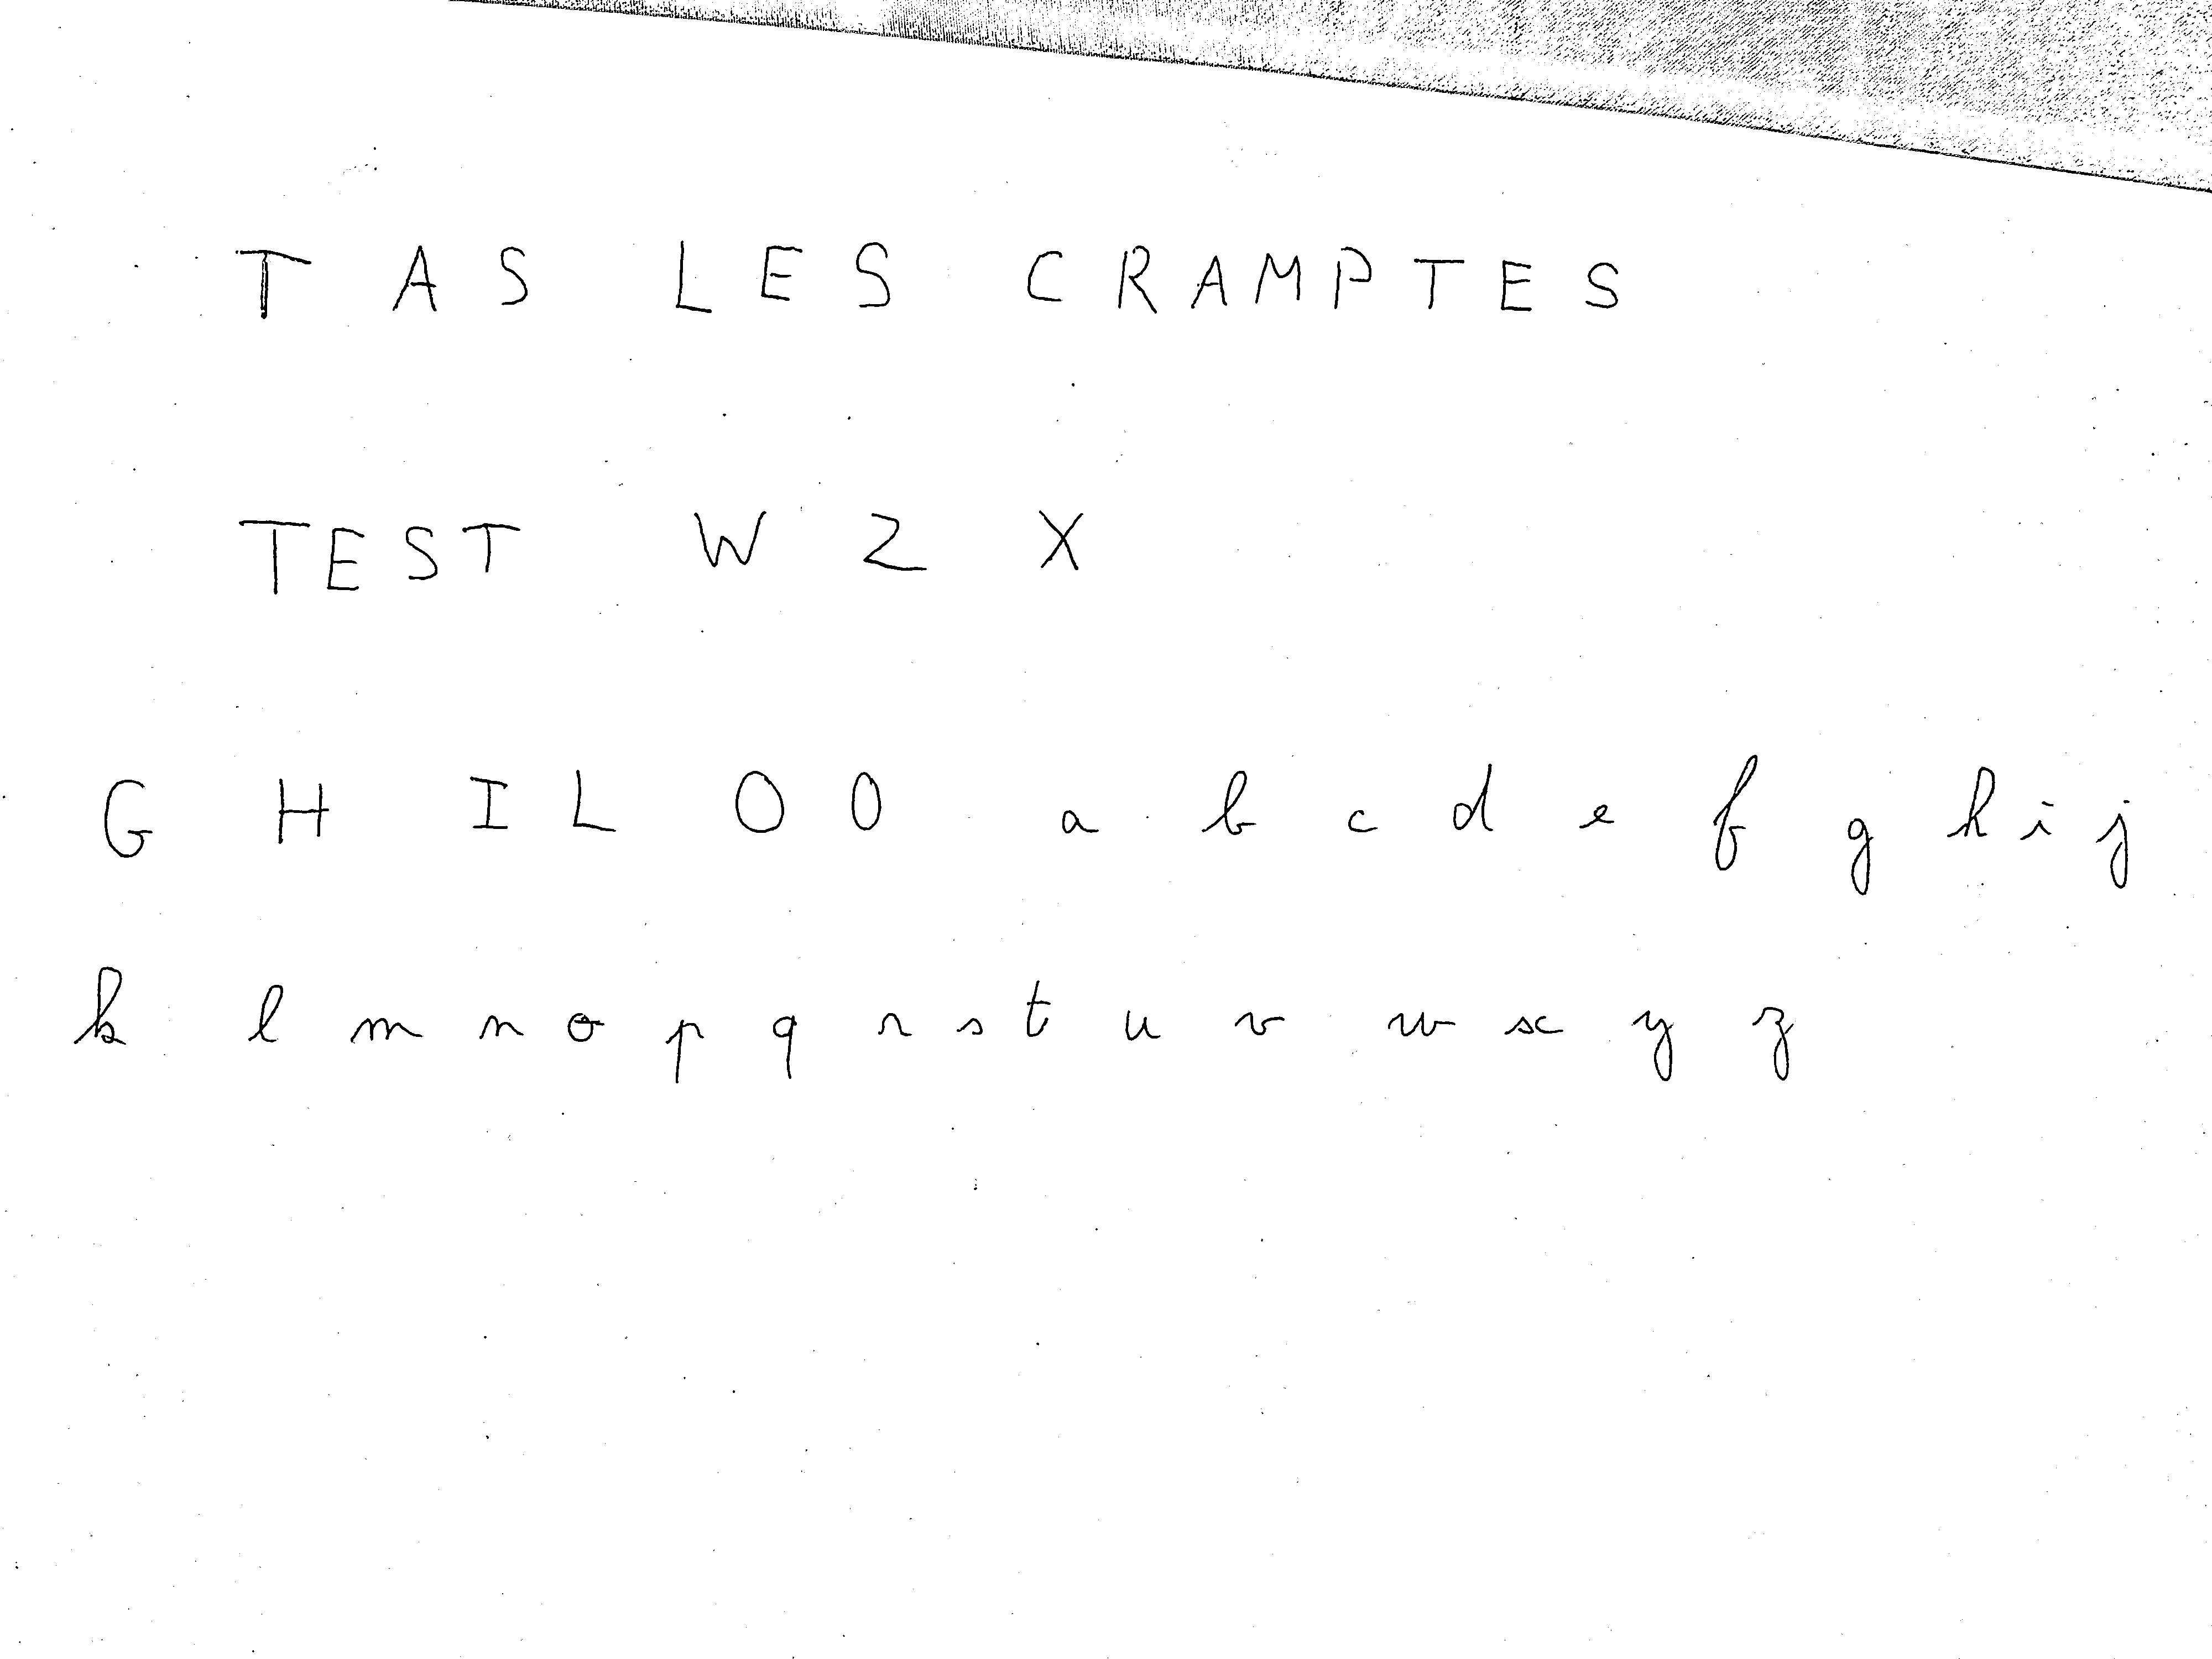 T AS LES CRAMPTES
TEST W Z X
G H I L O 0 a b c d e f g h i j
k l m n o p q r s t u v w x y z